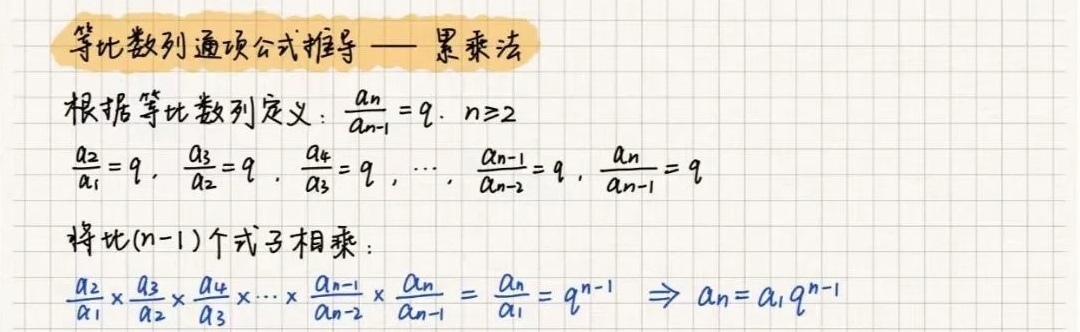 等比数列通项公式推导 —— 累乘法
根据等比数列定义: \frac{a_n}{a_{n-1}} = q. n≥2
\frac{a_2}{a_1} = q, \frac{a_3}{a_2} = q, \frac{a_4}{a_3} = q, ⋯, \frac{a_{n-1}}{a_{n-2}} = q, \frac{a_n}{a_{n-1}} = q
将比(n-1)个式子相乘:
\frac{a_2}{a_1} × \frac{a_3}{a_2} × \frac{a_4}{a_3} × ⋯ × \frac{a_{n-1}}{a_{n-2}} × \frac{a_n}{a_{n-1}} = \frac{a_n}{a_1} = q^{n-1} ⇒ a_n = a_1 q^{n-1}